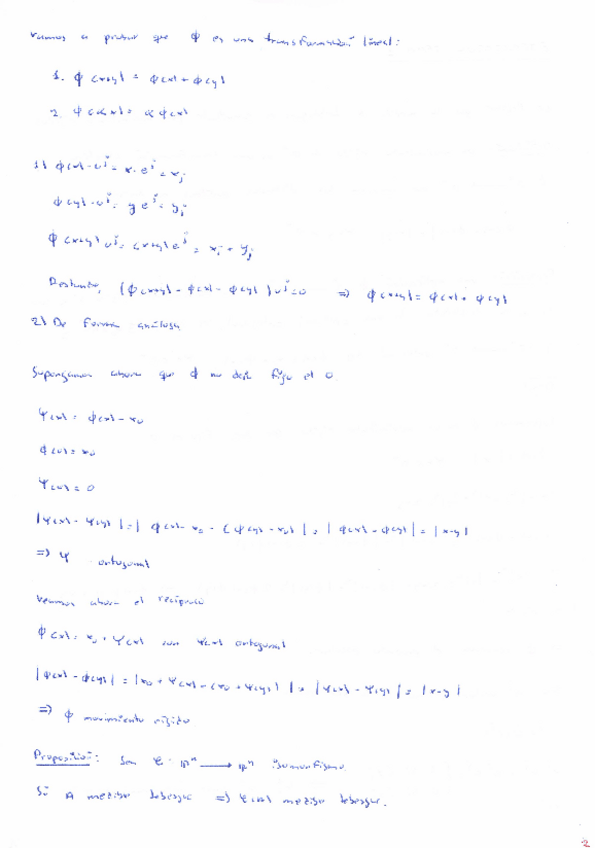 Vamos a probar que ϕ es una transformación lineal:
1. ϕ(x+y) = ϕ(x) + ϕ(y)
2. ϕ(αx) = α ϕ(x)
1) ϕ(x)·u^j = x·e^j = x_j
ϕ(y)·u^j = y e^j = y_j
ϕ(x+y) u^j = (x+y) e^j = x_j + y_j
(ϕ(x+y) - ϕ(x) - ϕ(y)) u^j = 0 ⇒ ϕ(x+y) = ϕ(x) + ϕ(y)
2) De forma análoga
Supongamos ahora que ϕ no deja fijo el 0
Ψ(x) = ϕ(x) - x_0
ϕ(0) = x_0
Ψ(0) = 0
|Ψ(x) - Ψ(y)| = | ϕ(x) - x_0 - (ϕ(y) - x_0) | = | ϕ(x) - ϕ(y) | = |x-y|
⇒ Ψ ortogonal
Veamos ahora el recíproco
ϕ(x) = x_0 + Ψ(x) con Ψ(x) ortogonal
|ϕ(x) - ϕ(y)| = |x_0 + Ψ(x) - (x_0 + Ψ(y)) | = |Ψ(x) - Ψ(y)| = |x-y|
⇒ ϕ movimiento rígido
Proposición: Sea φ: ℝⁿ ⟶ ℝⁿ homeomorfismo
Si A medible Lebesgue ⇒ φ(A) medible Lebesgue.
2